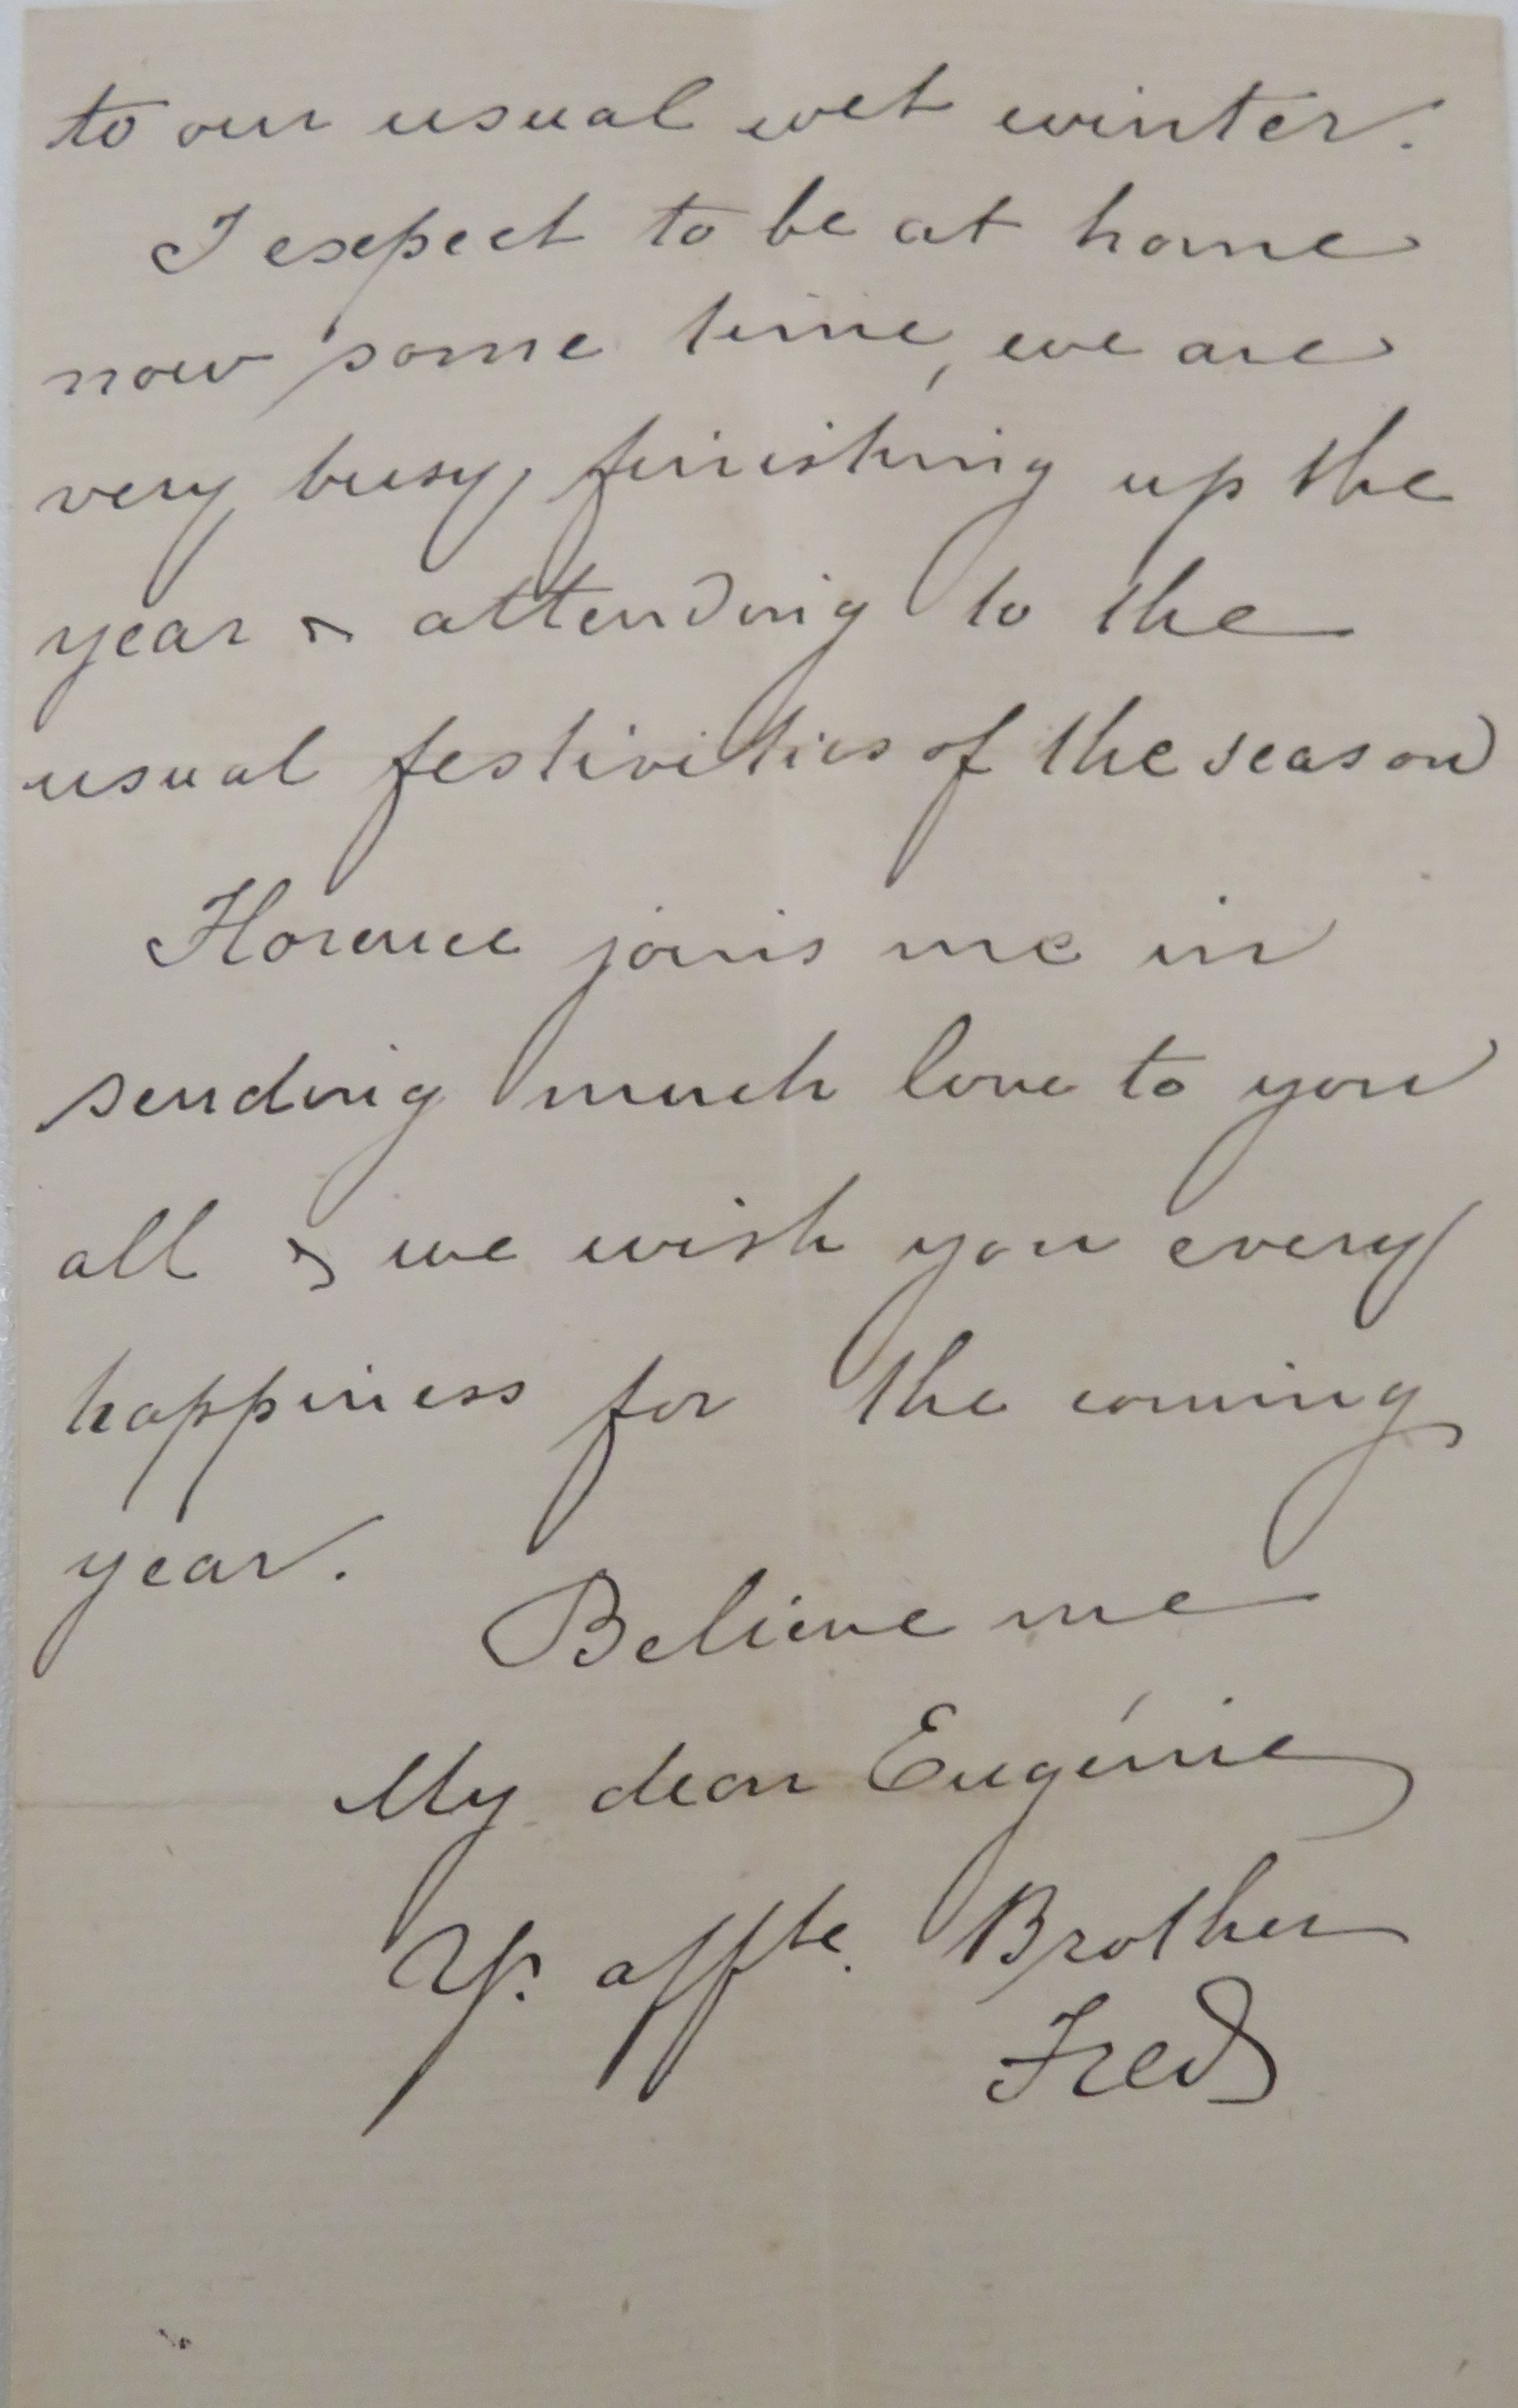 to our usual wet winter.
I expect to be at home
now some time, we are
very busy, finishing up the
year & attending to the
usual festivities of the season
Florence joins me in
sending much love to you
all & we wish you every
happiness for the coming
year.
Believe me
My dear Eugénie
Yr. affte. Brother
Fred